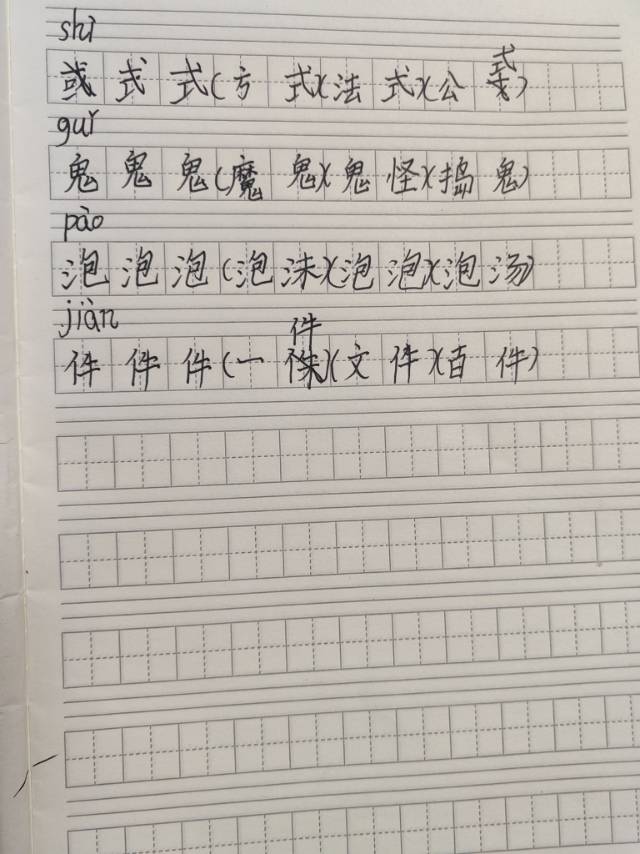 shì
式 式 式(方 式)(法 式)(公 式)
guǐ
鬼 鬼 鬼(魔 鬼)(鬼 怪)(捣 鬼)
pào
泡 泡 泡(泡 沫)(泡 泡)(泡 汤)
jiàn
件 件 件(一 件)(文 件)(百 件)